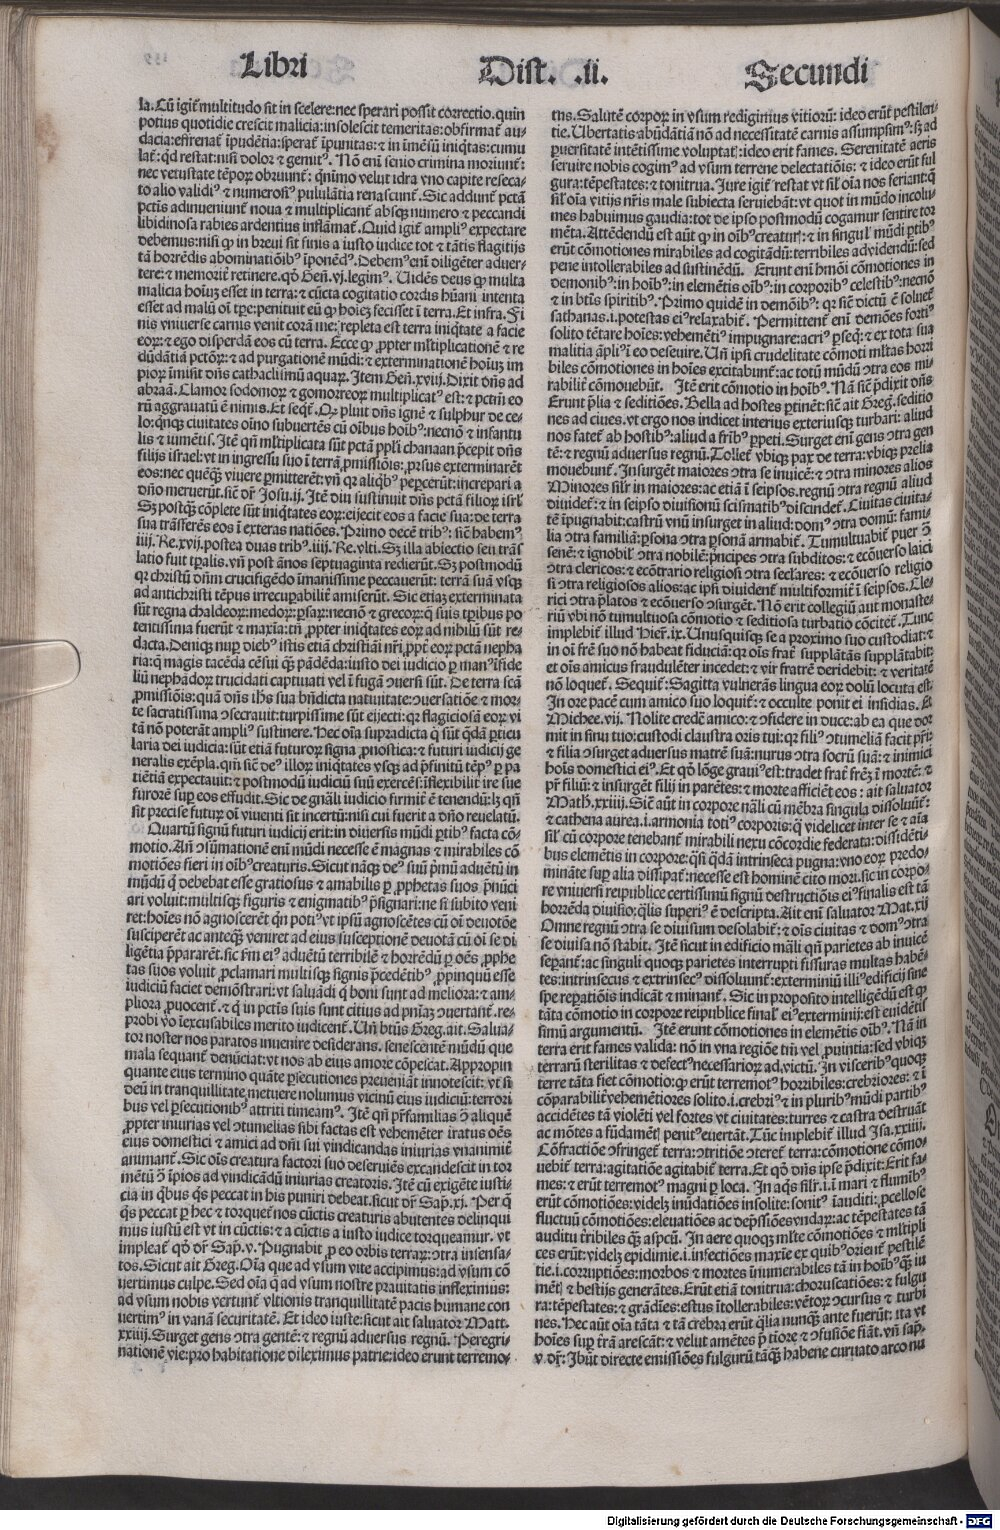 Libri Dist. .li. Secundi
la. Cū igit᷑ multitudo sit in scelere: nec sperari possit correctio. quin
potius quotidie crescit malicia: insolescit temeritas: obfirmat᷑ au-
dacia: effrenat᷑ īpudētia: sperat᷑ īpunitas: ⁊ in īmēsū iniq̄tas: cumu
lat᷑: qd restat: nisi dolor ⁊ gemitꝰ. Nō em̄ senio crimina moriunt᷑:
nec vetustate tēpoꝝ obruunt᷑: qͥnimo velut idra vno capite reseca-
to alio validiꝰ ⁊ numerosiꝰ pululātia renascunt᷑. Sic addunt᷑ pctā
pctīs adinueniunt᷑ noua ⁊ multiplicant᷑ absqꝫ numero ⁊ peccandi
libidinosa rabies ardentius inflāmat᷑. Quid igit᷑ ampliꝰ expectare
debemus: nisi ꝙ in breui sit finis a iusto iudice tot ⁊ tātis flagitijs
tā horrēdis abominatiōibꝰ īponēdꝰ. Debemꝰ em̄ diligēter aduer-
tere: ⁊ memorit᷑ retinere. qd̓ Geñ. vj. legimꝰ. Uidēs deus ꝙ multa
malicia hoīuꝫ esset in terra: ⁊ cūcta cogitatio cordis hūani intenta
esset ad malū oī tꝑe: penituit eū ꝙ hoīeꝫ fecisset ī terra. Et infra. Fi
nis vniuerse carnis venit corā me: repleta est terra iniq̄tate a facie
eoꝝ: ⁊ ego disperdā eos cū terra. Ecce ꝙ ꝓpter ml̓tiplicationē ⁊ re
dūdātiā pctōꝝ: ⁊ ad purgationē mūdi: ⁊ exterminationē hoīuꝫ im
pioꝝ īmisit dn̄s cathaclismū aquaꝝ. Item Geñ. xviij. Dixit dn̄s ad
abraā. Clamor sodomoꝝ ⁊ gomorreoꝝ multiplicatꝰ est: ⁊ pctm̄ eo
rū aggrauatū ē nimis. Et seqͥt᷑. Qꝫ pluit dn̄s ignē ⁊ sulphur de ce-
lo: qͥnqꝫ ciuitates oīno subuertēs cū oībus hoībꝰ: necnō ⁊ infantu
lis ⁊ iumētis. Itē qn̄ ml̓tiplicata sūt pctā ppl̓i chanaan p̄cepit dn̄s
filijs israel: vt in ingressu suo ī terrā ꝓmissiōis: ꝓrsus exterminarēt
eos: nec quēqꝫ viuere ꝑmitterēt: vn̄ qꝛ aliqͥbꝰ peꝑcerūt: increpari a
dn̄o meruerūt. sic̄ dr̄ Josu. ij. Itē diu sustinuit dn̄s pctā filioꝝ isrl̓
Sꝫ postqꝫ cōplete sūt iniq̄tates eoꝝ: eijecit eos a facie sua: de terra
sua trāsferēs eos ī exteras natiōes. Primo decē tribꝰ: sic̄ habemꝰ
iiij. Re. xvij. postea duas tribꝰ. iiij. Re. vlti. Sꝫ illa abiectio seu trās
latio fuit tꝑalis. vn̄ post ānos septuaginta redierūt. Sꝫ postmodū
qꝛ christū dn̄m crucifigēdo īmanissime peccauerūt: terrā suā vsqꝫ
ad antichristi tēpus irrecuꝑabilit᷑ amiserūt. Sic etiaꝫ exterminata
sūt regna chaldeoꝝ: medoꝝ: ꝑsaꝝ: necnō ⁊ grecoꝝ: q̄ suis tꝑibus po
tentissima fuerūt ⁊ maxīa: tn̄ ꝓpter iniq̄tates eoꝝ ad nihilū sūt re-
dacta. Deniqꝫ nuꝑ diebꝰ istis etiā christiāi nr̄i ꝓpt᷑ eoꝝ pctā nepha
ria: q̄ magis tacēda cēsui qꝫ pādēda: iusto dei iudicio ꝑ manꝰ īfide
liū nephādoꝝ trucidati captiuati vel ī fugā ꝯuersi sūt. De terra scā
ꝓmissiōis: quā dn̄s ihs̄ sua bn̄dicta natiuitate: ꝯuersatiōe ⁊ mor-
te sacratissima ꝯsecrauit: turpissime sūt eijecti: qꝛ flagiciosā eoꝝ vi
tā nō poterāt ampliꝰ sustinere. Hec oīa supradicta q̄ sūt q̄dā ꝑticu
laria dei iudicia: sūt etiā futuroꝝ signa ꝓnostica: ⁊ futuri iudicij ge
neralis exēpla. qm̄ sic̄ deꝰ illoꝝ iniq̄tates vsqꝫ ad p̄finitū tēpꝰ ꝑ pa
tiētiā expectauit: ⁊ postmodū iudiciū suū exercēs: īflexibilit᷑ ire sue
furorē suꝑ eos effudit. Sic de gn̄ali iudicio firmit᷑ ē tenendū: lꝫ qn̄
sit precise futuꝝ oī viuenti sit incertū: nisi cui fuerit a dn̄o reuelatū.
Quartū signū futuri iudicij erit: in diuersis mūdi ꝑtibꝰ facta cō-
motio. An̄ ꝯsūmationē em̄ mūdi necesse ē magnas ⁊ mirabiles cō
motiōes fieri in oībꝰ creaturis. Sicut nāqꝫ deꝰ suū pͥmū aduētū in
mūdū q̄ debebat esse gratiosus ⁊ amabilis ꝑ ꝓphetas suos p̄nūci
ari voluit: multisqꝫ figuris ⁊ enigmatibꝰ p̄signari: ne si subito veni
ret: hoīes nō agnoscerēt qͥn potiꝰ vt ipsū agnoscētes cū oī deuotōe
susciperēt ac anteqꝫ veniret ad eius susceptionē deuotā cū oī se di
ligētia p̄pararēt. sic scd̓m eiꝰ aduētū terribilē ⁊ horrēdū ꝑ oēs ꝓphe
tas suos voluit ꝓclamari multisqꝫ signis p̄cedētibꝰ ꝓpinquū esse
iudiciū faciet demōstrari: vt saluādi q̄ boni sunt ad meliora: ⁊ am-
pliora ꝓuocent᷑. ⁊ q̄ in pctīs suis sunt citius ad pn̄iaꝫ ꝯuertant᷑. re-
probi v̄o īexcusabiles merito iudicent᷑. Un̄ btūs Greg. ait. Salua-
tor noster nos paratos inuenire desiderans. senescentē mūdū que
mala sequant᷑ denūciat: vt nos ab eius amore cōpescat. Appropin
quante eius termino quāte ꝑsecutiones preueniāt innotescit: vt si
deū in tranquillitate metuere nolumus vicinū eius iudiciū: terrori
bus vel ꝑsecutionibꝰ attriti timeamꝰ. Itē qn̄ pr̄familias ꝯ aliquē
ꝓpter iniurias vel ꝯtumelias sibi factas est vehemēter iratus oēs
eius domestici ⁊ amici ad dn̄i sui vindicandas iniurias vnanimit᷑
animant᷑. Sic oīs creatura factori suo deseruiēs excandescit in tor
mētū ꝯ īpios ad vindicādū iniurias creatoris. Itē cū exigēte iusti-
cia in qͥbus qͥs peccat in his puniri debeat. sicut dr̄ Sap̄. xi. Per q̄
qͥs peccat ꝑ hec ⁊ torquet᷑ nos cūctis creaturis abutentes delinqui
mus iustū est vt in cūctis: ⁊ a cūctis a iusto iudice torqueamur. vt
impleat᷑ qd̓ dr̄ Sap̄. v. Pugnabit ꝓ eo orbis terraꝝ: ꝯtra insensa-
tos. Sicut ait Greg. Oīa que ad vsum vite accipimus: ad vsum cō
uertimus culpe. Sed oīa q̄ ad vsum nostre prauitatis infleximus:
ad vsum nobis vertunt᷑ vltionis tranquillitatē pacis humane con
uertimꝰ in vanā securitatē. Et ideo iuste: sicut ait saluator Matt.
xxiiij. Surget gens ꝯtra gentē: ⁊ regnū aduersus regnū. Peregri-
nationē vie: pro habitatione dileximus patrie: ideo erunt terremo-
tus. Salutē corpoꝝ in vsum redigimus vitioꝝ: ideo erūt pestilen-
tie. Ubertatis abūdātiā nō ad necessitatē carnis assumpsimꝰ: sꝫ ad
ꝑuersitatē intētissime voluptatꝭ: ideo erit fames. Serenitatē aeris
seruire nobis cogimꝰ ad vsum terrene delectatiōis: ⁊ ideo erūt ful
gura: tēpestates: ⁊ tonitrua. Jure igit᷑ restat vt sil̓ oīa nos feriant: q̄
sil̓ oīa vitijs nr̄is male subiecta seruiebāt: vt quot in mūdo incolu-
mes habuimus gaudia: tot de ipso postmodū cogamur sentire tor
mēta. Attēdendū est aūt ꝙ in oībꝰ creaturꝭ: ⁊ in singulꝭ mūdi ꝑtibꝰ
erūt cōmotiones mirabiles ad cogitādū: terribiles ad videndū: sed
pene intollerabiles ad sustinēdū. Erunt em̄ hmōi cōmotiones in
demonibꝰ: in hoībꝰ: in elemētis oībꝰ: in corporibꝰ celestibꝰ: necnō
⁊ in btīs spiritibꝰ. Primo quidē in demōibꝰ: qꝛ sic̄ dictū ē soluet᷑
sathanas. i. potestas eiꝰ relaxabit᷑. Permittent᷑ em̄ demōes fortiꝰ
solito tētare hoīes: vehemētiꝰ impugnare: acriꝰ ꝑseqͥ: ⁊ ex tota sua
malitia āpliꝰ ī eo deseuire. Un̄ ipsi crudelitate cōmoti ml̓tas horri
biles cōmotiones in hoīes excitabunt: ac totū mūdū ꝯtra eos mi-
rabilit᷑ cōmouebūt. Itē erit cōmotio in hoībꝰ. Nā sic̄ p̄dixit dn̄s
Erunt p̄lia ⁊ seditiōes. Bella ad hostes ꝑtinēt: sic̄ ait Greg. seditio
nes ad ciues. vt ergo nos indicet interius exteriusqꝫ turbari: aliud
nos fatet᷑ ab hostibꝰ: aliud a fr̄ibꝰ ꝑpeti. Surget em̄ gens ꝯtra gen
tē: ⁊ regnū aduersus regnū. Tollet᷑ vbiqꝫ pax de terra: vbiqꝫ prelia
mouebunt᷑. Insurgēt maiores ꝯtra se inuicē: ⁊ ꝯtra minores alios
Minores sil̓r in maiores: ac etiā ī seipsos. regnū ꝯtra regnū aliud
diuidet᷑: ⁊ in seipso diuisionū scismatibꝰ discindet᷑. Ciuitas ciuita-
tē īpugnabit: castrū vnū insurget in aliud: domꝰ ꝯtra domū: fami-
lia ꝯtra familiā: ꝑsona ꝯtra ꝑsonā armabit᷑. Tumultuabit᷑ puer ꝯ
senē: ⁊ ignobilꝭ ꝯtra nobilē: pͥncipes ꝯtra subditos: ⁊ ecōuerso laici
ꝯtra clericos: ⁊ ecōtrario religiosi ꝯtra secl̓ares: ⁊ ecōuerso religio
si ꝯtra religiosos alios: ac ipsi diuident᷑ multiformit᷑ ī seipsos. Cle-
rici ꝯtra p̄latos ⁊ ecōuerso ꝯsurgēt. Nō erit collegiū aut monaste-
riū vbi nō tumultuosa cōmotio ⁊ seditiosa turbatio cōcitet᷑. Tunc
implebit᷑ illud Hier̄. ix. Unusquisqꝫ se a proximo suo custodiat: ⁊
in oī fr̄e suo nō habeat fiduciā: qꝛ oīs frat᷑ supplātās supplātabit:
et oīs amicus fraudulēter incedet: ⁊ vir fratrē deridebit: ⁊ veritatē
nō loquet᷑. Sequit᷑: Sagitta vulnerās lingua eoꝝ dolū locuta est.
In ore pacē cum amico suo loquit᷑: ⁊ occulte ponit ei insidias. Et
Michee. vij. Nolite credē amico: ⁊ ꝯfidere in duce: ab ea que dor
mit in sinu tuo: custodi claustra oris tui: qꝛ filiꝰ ꝯtumeliā facit pr̄i:
⁊ filia ꝯsurget aduersus matrē suā: nurus ꝯtra socrū suā: ⁊ inimici
hoīs domestici eiꝰ. Et qd̓ lōge grauiꝰ est: tradet frat᷑ frēꝫ ī mortē: ⁊
pr̄ filiū: ⁊ insurgēt filij in parētes: ⁊ morte afficiēt eos: ait saluator
Math. xxiiij. Sic̄ aūt in corpore nāli cū mēbra singula dissoluūt᷑:
⁊ cathena aurea. i. armonia totiꝰ corporis: q̄ videlicet inter se ⁊ aīa
sil̓ cū corpore tenebant᷑ mirabili nexu cōcordie federata: dissidēti-
bus elemētis in corpore: qͣsi q̄dā intrinseca pugna: vno eoꝝ predo-
mināte suꝑ alia dissipat᷑: necesse est hominē cito mori. sic in corpo-
re vniuersi reipublice certissimū signū destructiōis eiꝰ finalis est tā
horrēda diuisio: qͣlis superiꝰ ē descripta. Ait em̄ saluator Mat. xij
Omne regnū ꝯtra se diuisum desolabit᷑: ⁊ oīs ciuitas ⁊ domꝰ ꝯtra
se diuisa nō stabit. Itē sicut in edificio māli qn̄ parietes ab inuicē
seꝑant᷑: ac singuli quoqꝫ parietes interrupti fissuras multas habē-
tes: intrinsecus ⁊ extrinsecꝰ dissoluunt᷑: exterminiū illiꝰ edificij sine
spe reꝑatiōis indicāt ⁊ minant᷑. Sic in proposito intelligēdū est ꝙ
tāta cōmotio in corpore reipublice finalꝭ eiꝰ exterminij: est euidētis
simū argumentū. Itē erunt cōmotiones in elemētis oībꝰ. Nā in
terra erit fames valida: nō in vna regiōe tm̄ vel ꝓuintia: sed vbiqꝫ
terrarū sterilitas ⁊ defectꝰ necessarioꝝ ad victū. In visceribꝰ quoqꝫ
terre tāta fiet cōmotio: ꝙ erūt terremotꝰ horribiles: crebriores: ⁊ ī
cōparabilit᷑ vehemētiores solito. i. crebriꝰ ⁊ in pluribꝰ mūdi partibꝰ
accidētes tā violēti vel fortes vt ciuitates: turres ⁊ castra destruāt
ac mōtes a fūdamētꝭ penitꝰ euertāt. Tūc implebit᷑ illud Isa. xxiiij.
Cōfractiōe ꝯfringet᷑ terra: ꝯtritiōe ꝯteret᷑ terra: cōmotione cōmo-
uebit᷑ terra: agitatiōe agitabit᷑ terra. Et qd̓ dn̄s ipse p̄dixit: Erit fa-
mes: ⁊ erūt terremotꝰ magni ꝑ loca. In aqͥs sil̓r. i. ī mari ⁊ flumībꝰ
erūt cōmotiōes: videlꝫ inūdatiōes insolite: sonitꝰ īauditi: ꝓcellose
fluctuū cōmotiōes: eleuatiōes ac dep̄ssiōes vndaꝝ: ac tēpestates tā
auditu tr̄ibiles qꝫ aspcū. In aere quoqꝫ ml̓te cōmotiōes ⁊ ml̓tipli
ces erūt: videlꝫ epidimie. i. infectiōes maxīe ex quibꝰ orient᷑ pestilē
tie. i. corruptiōes: morbos ⁊ mortes īnumerabiles tā in hoībꝰ qꝫ iu
mētꝭ ⁊ bestijs generātes. Erūt etiā tonitrua: choruscatiōes: ⁊ fulgu
ra: tēpestates: ⁊ grādīes: estus ītollerabiles: vētoꝝ ꝯcursus ⁊ turbi
nes. Hec aūt oīa tāta ⁊ tā crebra erūt qͣlia nunqꝫ ante fuerūt: ita vt
hoīes suꝑ tr̄ā arescāt: ⁊ velut amētes p̄ tiōre ⁊ ꝯfusiōe fiāt. vn̄ sap̄.
v. dr̄: Ibūt directe emissiōes fulgurū tāqꝫ habene curuato arco nu
Digitalisierung gefördert durch die Deutsche Forschungsgemeinschaft - DFG